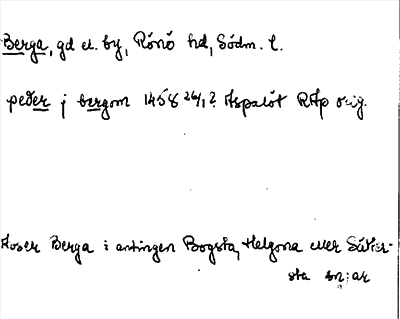 Berga, gd el. by, Rönö hd, Södm. l.
peder j bergom 1458 26/1? Aspalöt RAp orig.
Avser Berga i antingen Bogsta, Helgona eller Sätter-
sta sn:ar